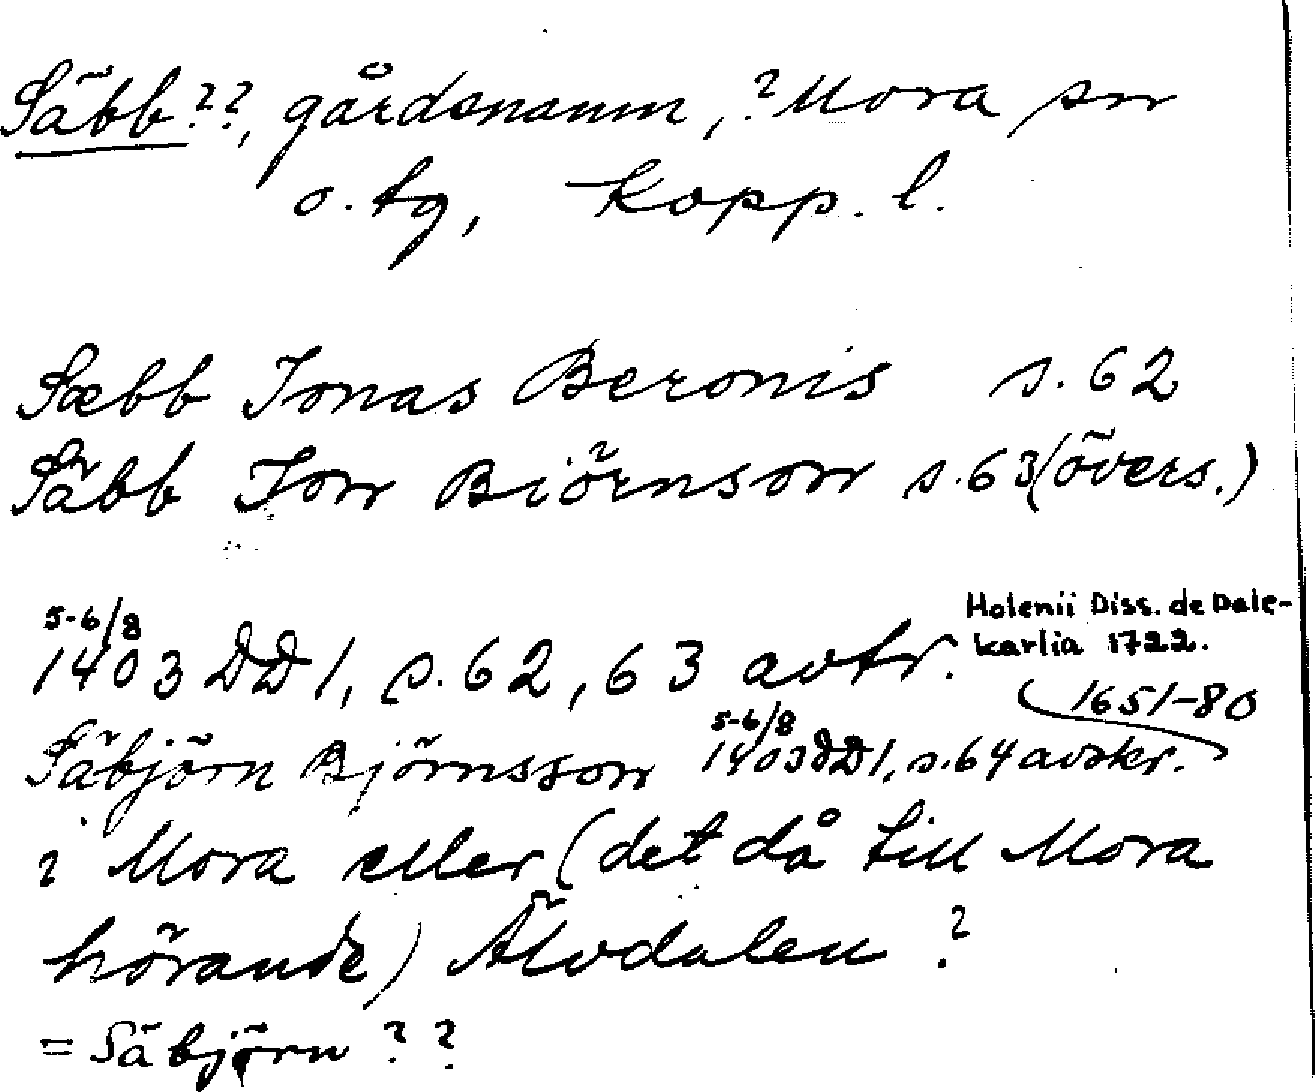 Säbb??, gårdsnamn, ? Mora sn
o. tg, Kopp. l.
Sæbb Jonas Beronis s. 62
Säbb Jon Biörnson s. 63 (övers.)
5-6/8
1403 DD 1, s. 62, 63 avtr.
Holenii Diss. de Dale-
karlia 1722.
1651-80
Säbjörn Björnsson 5-6/8 1403 DD 1, s. 64 avskr.
i Mora eller (det då till Mora
hörande) Älvdalen ?
= Säbjörn ??